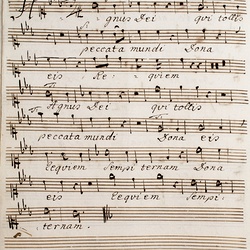 Agnus Dei qui tollis
peccata mundi Dona
eis Re- quiem
Agnus Dei qui tollis
peccata mundi Dona eis
requiem sempiternam Dona
eis requiem sempi-
ternam.